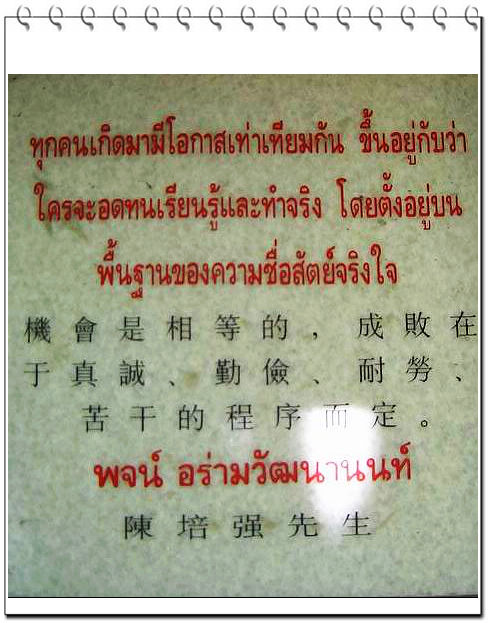 ทุกคนเกิดมามีโอกาสเท่าเทียมกัน ขึ้นอยู่กับว่า
ใครจะอดทนเรียนรู้และทำจริง โดยตั้งอยู่บน
พื้นฐานของความซื่อสัตย์จริงใจ
機會是相等的，成敗在
于真誠、勤儉、耐勞、
苦干的程序而定。
พจน์ อร่ามวัฒนานนท์
陳培强先生